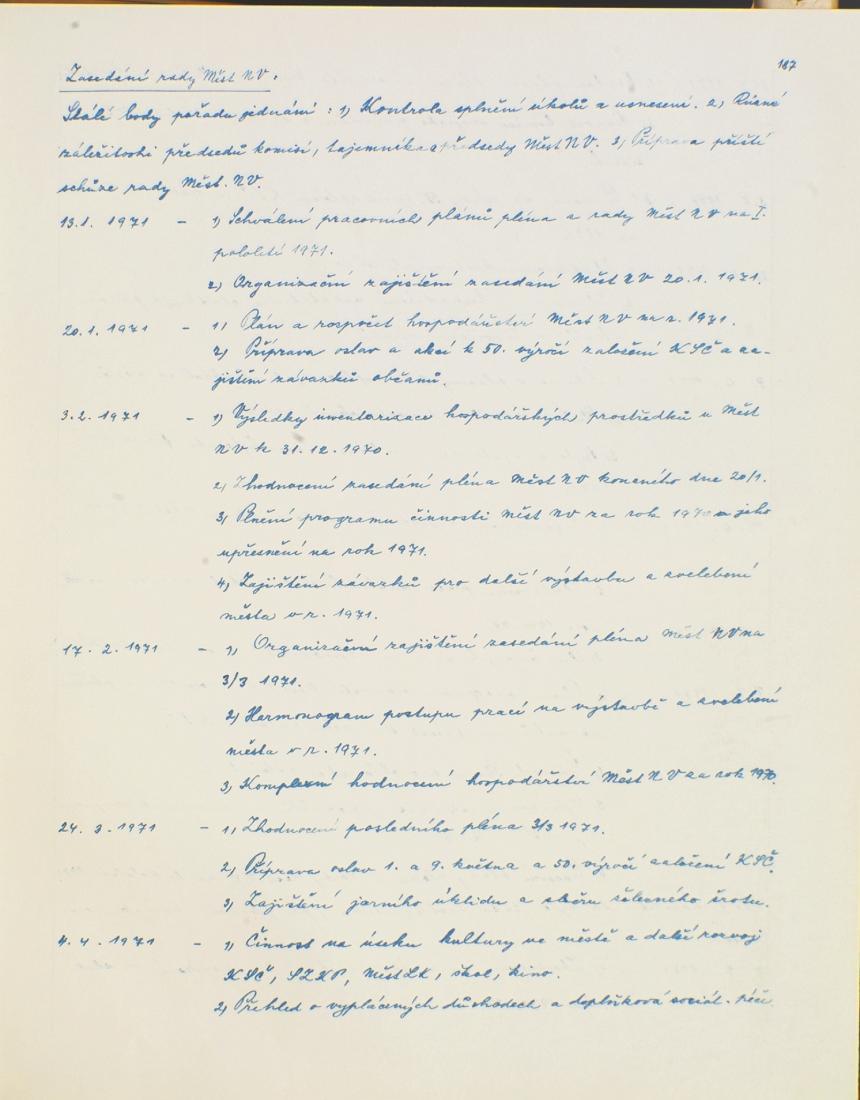 187
Zasedání rady Měst NV.
Stálé body pořadu jednání: 1) Kontrola splnění úkolů a usnesení. 2) Různé
záležitosti předsedů komisí, tajemníka a předsedy Měst NV. 3) Příprava příští
schůze rady Měst. NV.
13.1. 1971 – 1) Schválení pracovních plánů pléna a rady Měst NV na I.
pololetí 1971.
2) Organizační zajištění zasedání Měst NV 20.1. 1971.
20.1. 1971 – 1) Plán a rozpočet hospodářství Měst NV na r. 1971.
2) Příprava oslav a akcí k 50. výročí založení KSČ a za-
jištění závazků občanů.
3.2. 1971 – 1) Výsledky inventarizace hospodářských prostředků u Měst
NV k 31.12.1970.
2) Zhodnocení zasedání pléna Měst NV konaného dne 20/1.
3) Plnění programu činnosti Měst NV za rok 1970 a jeho
upřesnění na rok 1971.
4) Zajištění závazků pro další výstavbu a zvelebení
města v r. 1971.
17. 2. 1971 – 1) Organizační zajištění zasedání pléna Měst NV na
3/3 1971.
2) Harmonogram postupu prací na výstavbě a zvelebení
města v r. 1971.
3) Komplexní hodnocení hospodářství Měst NV za rok 1970.
24. 3. 1971 – 1) Zhodnocení posledního pléna 3/3 1971.
2) Příprava oslav 1. a 9. května a 50. výročí založení KSČ.
3) Zajištění jarního úklidu a sběru železného šrotu.
4. 4. 1971 – 1) Činnost na úseku kultury ve městě a další rozvoj
KSČ, SZKP, Měst LK, škol, kino.
2) Přehled o vyplácených důchodech a doplňková sociál. péče